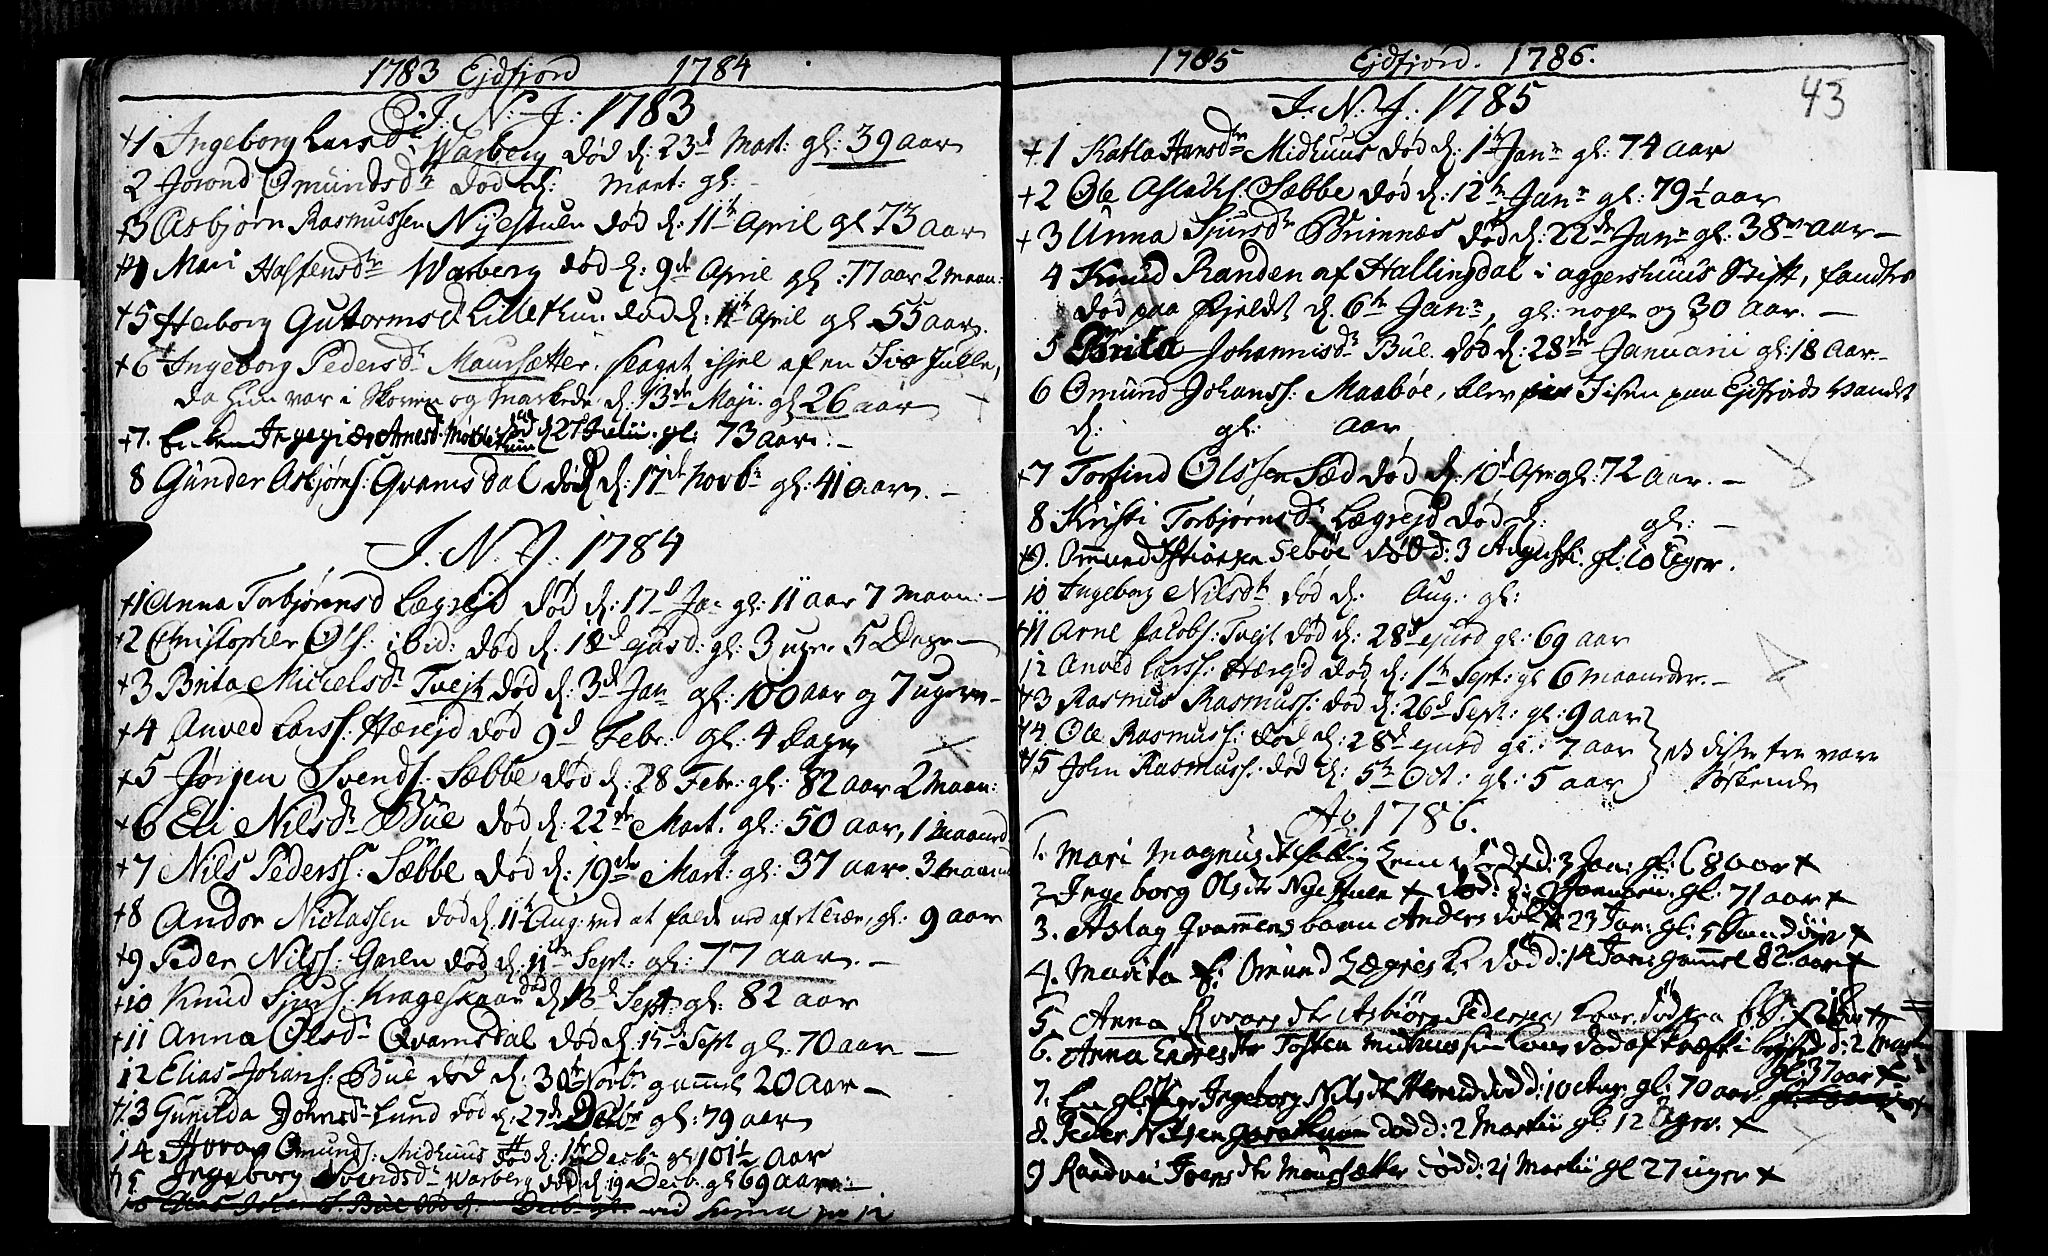 1783 Ejdfjord 1784
J. N. J. 1783
+1 Ingeborg Larsd: Warberg død d: 23d Mart: gl: 39 aar
2 Jorond Omundsdr død d: Mart: gl: -
+3 Asbjørn Rasmussen Nyestuen død d: 11te April gl 73 aar
+4 Mari Hastensdr Warberg død d: 9de April gl: 77 aar 2 maan:
+5 Herborg Guttormsd Lillethun død d: 11te April gl 55 aar.
+6 Ingeborg Pedersdr Maursætter. slaget ihjel af en
da hun var i Skoven og markede d: 13de Maji. gl 26 aar
+7. Enken Arnesd: død d 27 Julii. gl: 73 aar. -
8 Gunder Asbjørns: Qvamsdal død d: 17de Novbr gl: 41 aar. -
J. N. J. 1784
+1 Anna Torbjørnsd Lægrejd død d: 17d Jan gl: 11 aar 7 maan: -
+2 Christopher Ols: ibid: død d: 18d ejusd: gl: 3 uger 5 Dage
+3 Brita Michelsdr Tvejt død d: 3d Jan gl: 100 aar og 7 uger -
+4 Anved Larss: Hærejd død 9d Febr: gl: 4 Dage
+5 Jørgen Svends: Sæbbe død d: 28 Febr: gl: 82 aar 2 maan:
+6 Eli Nilsdr Bue død d: 22de Mart. gl: 50 aar, 1 maaned
+7 Nils Pederss: Sæbbe død d: 19de Mart: gl: 37 aar. 3 maaned
+8 Andor Niclassen død d: 11te Aug: ved at falde ned af et Træe, gl: 9 aar
+9 Peder Nilss: Garen død d: 11te Sept: gl: 77 aar. -
+10 Knud Sjurs: Krageskaar død d 13d Sept: gl: 82 aar
+11 Anna Olsdr Qvamsdal død d: 15d Sept gl: 70 aar -
12 Elias Johans: Bue død d: 30te Novbr gammel 20 Aar -
+13 Gunilda Joensdr Lund død d: 27de Decbr gl: 79 aar
14 Omunds: Midhuus død d: 1te Decbr gl 101½ Aar
+15 Ingeborg Svendsdr Warberg død d: 19 Decb: gl 69 aar: -
16 Elias Johans: Bue død d: Decbr gl: vid supra no 12
1785 Ejdfjord. 1786.
43
J. N. J. 1785
+1 Katla Hansdtr Midhuus død d: 1te Janr gl: 74 aar
+2 Ole Aslachs: Sæbbe død d: 12te Janr gl: 79½ aar
+3 Anna Sjursdr Brimnæs død d: 22de Janr gl: 38 aar -
4 Knud Randen af Hallingdal i aggershuus Stift, fandtes
død paa fjeldet d. 6te Janr, gl: nogle og 30 aar. -
5 Brita Johannisdr Bue. død d: 28de Januarii gl: 18 Aar -
6 Omund Johanss: Maabøe, blev under Jisen paa Ejdfjords Vandet
d: gl: aar
+7 Torfind Olssen Sæd død d: 10d Apr gl: 72 aar. -
8 Kristi Torbjørnsdr Lægrejd død d: gl: -
+9. Ommund Sebøe død d: 3 Augusti. gl: 10 Uger.
10 Ingeborg Nilsdr død d: Aug: gl:
+11 Arne Jacobs: Tvejt død d: 28d ejusd gl: 69 aar
12 Anved Larss: Hærejd død d: 1te Sept: gl 6 maaneder. -
+13 Rasmus Rasmuss: død d: 26d Sept: gl: 9 aar
+14 Ole Rasmuss: død d: 28d ejusd gl: 7 aar } NB disse tre vare
+15 John Rasmuss: død d: 5te Oct: gl: 5 aar } Søskende
Ao. 1786.
1. Mari Magnusdtr død d: 3 Jan: gl: 68 aar +
2 Ingeborg Olsdtr Nyestuen + død: d: Januarii. gl: 71 aar +
3. Aslag Qvammens barn Anders død d: 23 Jan: gl: 5 +
4. Marita Omund død d: 14 Jan: gammel 82 aar +
5. Anna Roarsdtr Asbiørn Pedersen Kone, død
6. Anna Endresdtr Tosten Midhuus sin kone død af d: 2 Martii
gl: 37 aar +
7. En gl: Pige Ingeborg Nilsdtr Hæreid død d: 10 gl: 70 aar
8. Peder Nilsen død d: 2 Martii gl: 12 Uger. +
9 Randvei Joensdtr Maursætter død d: 21 Martii gl 27 uger +